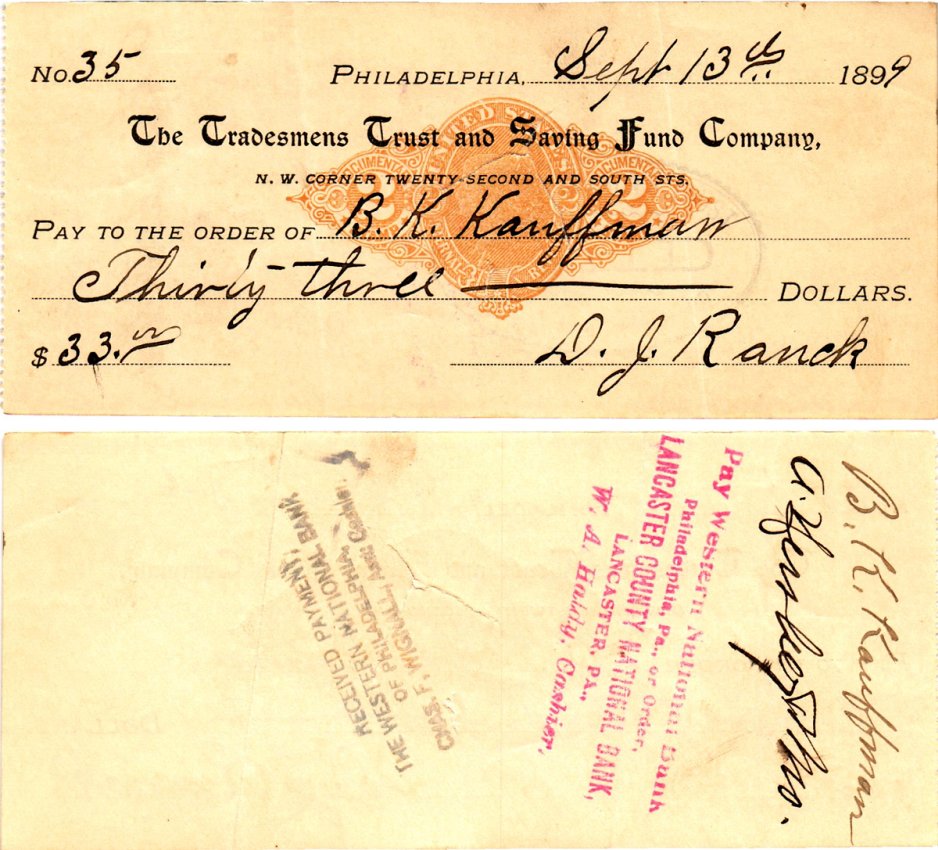 No. 35 PHILADELPHIA, Sept 13th 1899
The Tradesmens Trust and Saving Fund Company,
N. W. CORNER TWENTY-SECOND AND SOUTH STS.
UNITED STATES
DOCUMENTARY DOCUMENTARY
2 2
INTERNAL REVENUE
PAY TO THE ORDER OF B. K. Kauffman
Thirty three DOLLARS.
$ 33.00 D. J. Ranck
B. K. Kauffman
Pay Western National Bank
Philadelphia, Pa., or Order,
LANCASTER COUNTY NATIONAL BANK,
LANCASTER, PA.,
W. A. Cashier,
RECEIVED PAYMENT,
THE WESTERN NATIONAL BANK
OF PHILADELPHIA.
CHAS. F. WIGNALL, Asst Cashier.